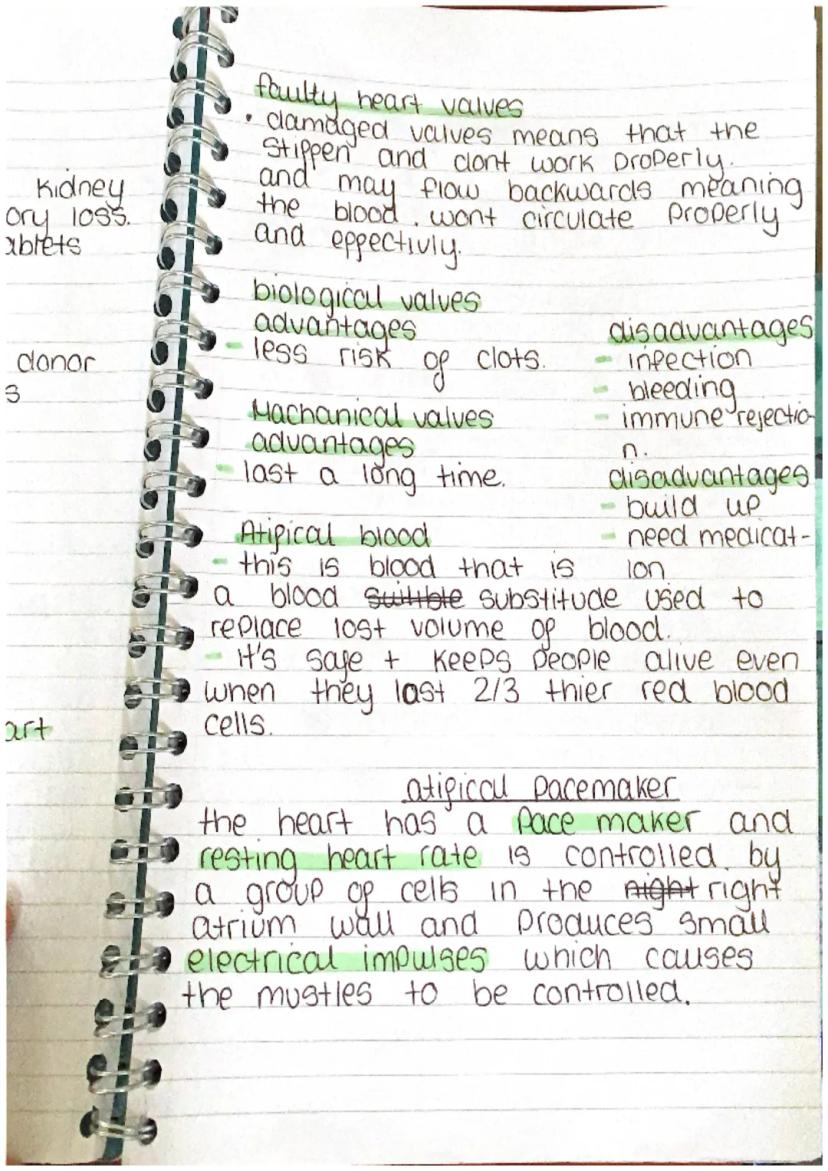 kidney
ory loss.
ablets
donor
s
art
faulty heart valves
• damaged valves means that the
stiffen and dont work properly.
and may flow backwards meaning
the blood . wont circulate properly
and effectivly.
biological valves
advantages
- less risk of clots.
disadvantages
- infection
- bleeding
- immune rejectio-
n.
Machanical valves
advantages
- last a long time.
disadvantages
- build up
- need medicat-
ion
Atifical blood
- this is blood that is
a blood suitible substitude used to
replace lost volume of blood.
- it's safe + keeps people alive even
when they lost 2/3 thier red blood
cells.
atifical pacemaker
the heart has a pace maker and
resting heart rate is controlled by
a group of cells in the night right
atrium wall and produces small
electrical impulses which causes
the mustles to be controlled.